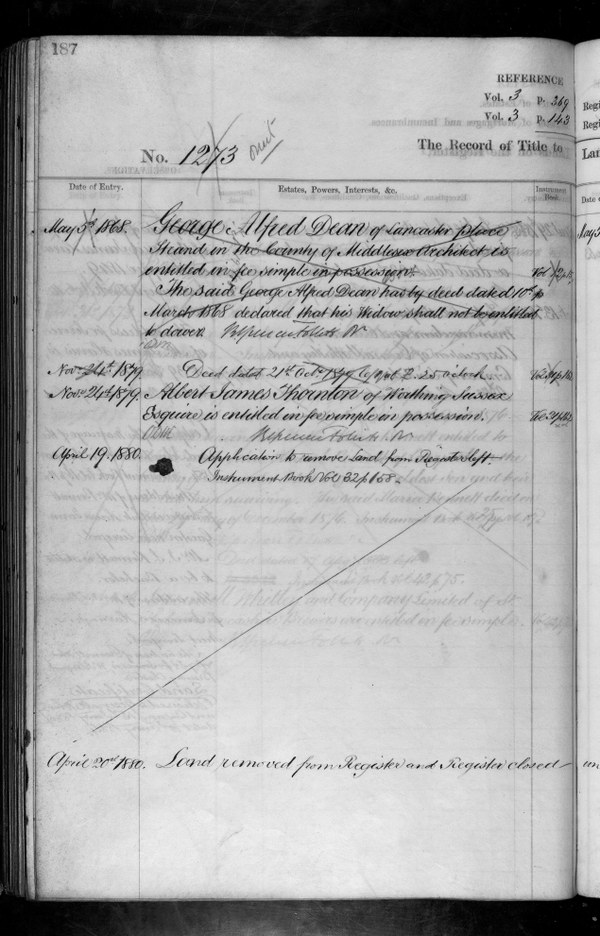 187
REFERENCE
Vol. 3 p. 369
Vol. 3 p. 143
No. 1273
The Record of Title to
Date of Entry. Estates, Powers, Interests, &c. Instrument
May 5th 1868. George Alfred Dean of Lancaster place
Strand in the County of Middlesex Architect is
entitled in fee simple in possession.
The said George Alfred Dean has by deed dated 10th
March 1868 declared that his Widow shall not be entitled
to dower.
Novr. 24th 1879 Deed dated 21st Octr. 1879 left at 2.25 oclock.
Novr. 24th 1879. Albert James Thornton of Worthing Sussex
Esquire is entitled in fee simple in possession.
April 19. 1880. Application to remove Land from Register left.
Instrument Book Vol 32 p 158.
April 20th 1880. Land removed from Register and Register closed